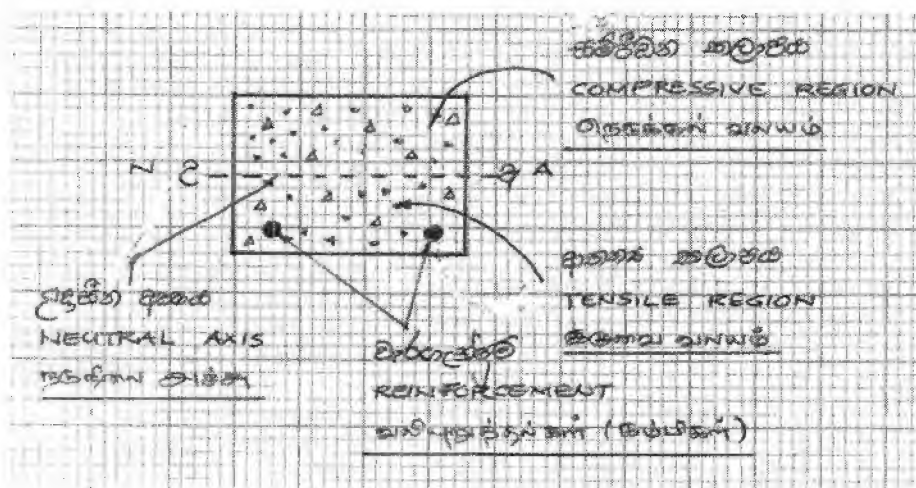 සම්පීඩන කලාපය
COMPRESSIVE REGION
நெருக்கல் வலயம்
N උ අ A
ආතන්‍ය කලාපය
TENSILE REGION
இழுவை வலயம்
උදාසීන අක්ෂය
NEUTRAL AXIS
நடுநிலை அச்சு
වැරගැන්නුම්
REINFORCEMENT
வலியுறுத்தல்கள் (கம்பிகள்)